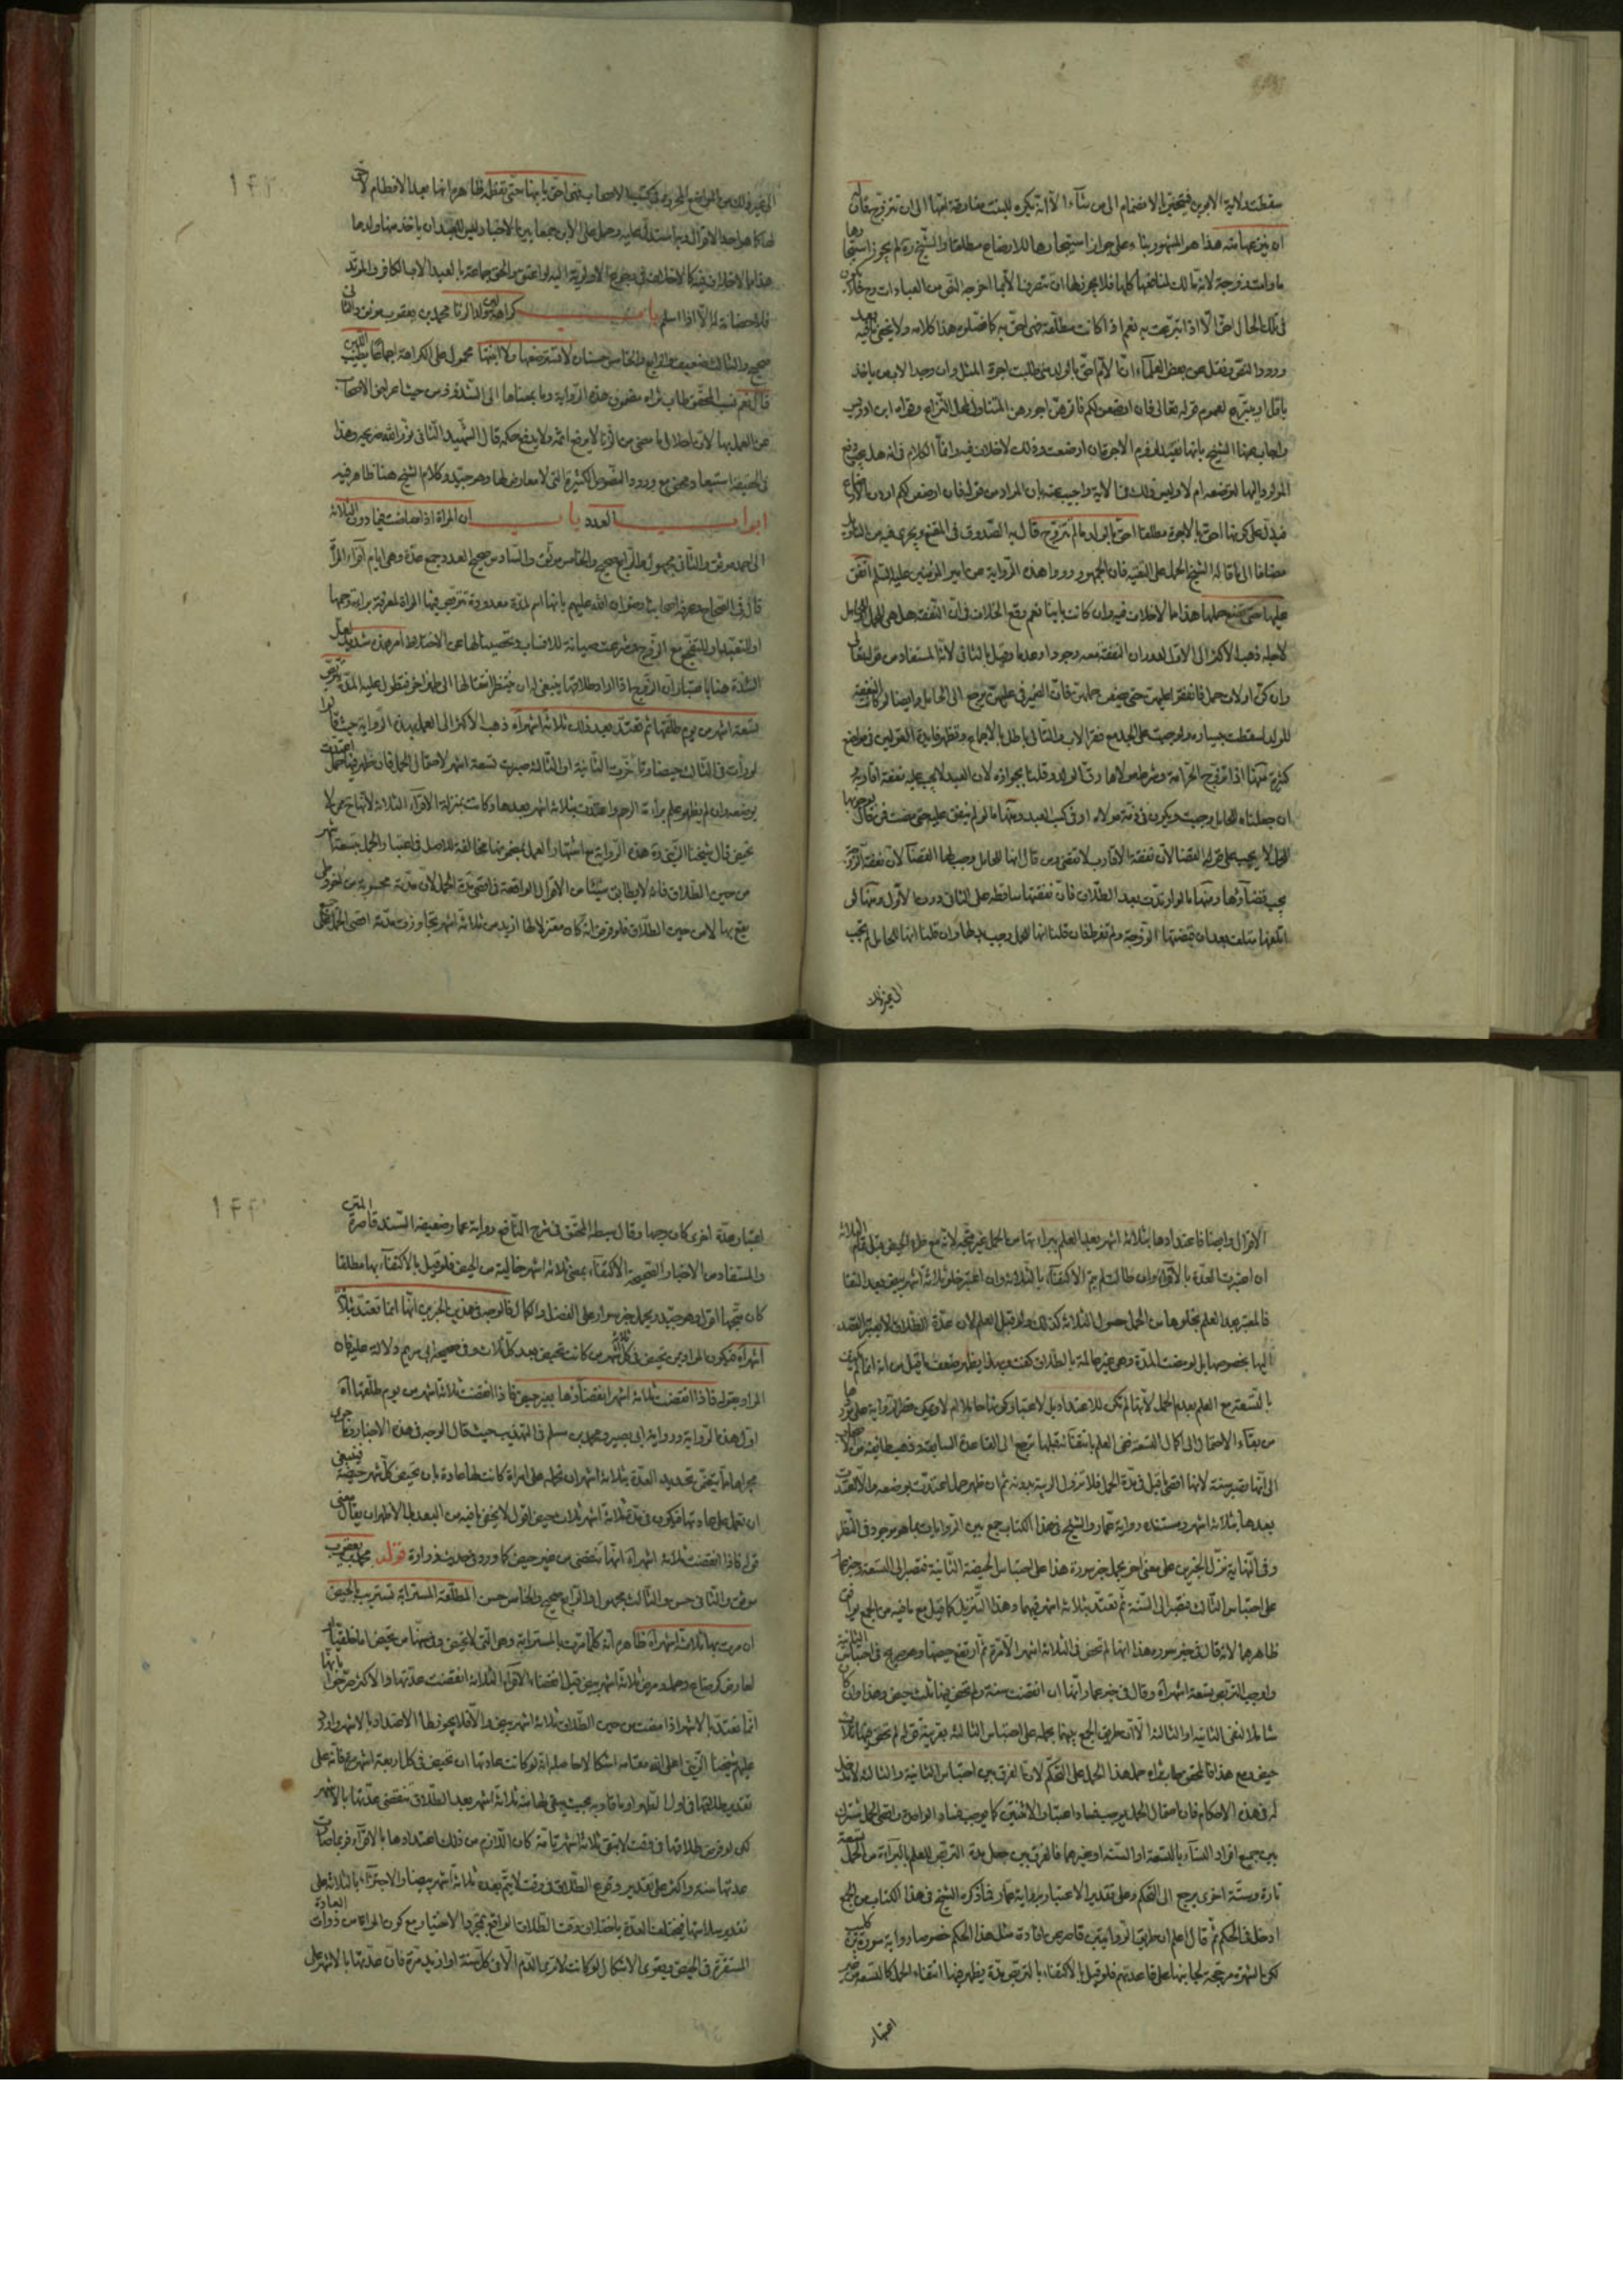 سقطت ولاية الابوين فيتخير في الانضمام الى من شاء الا انه يكره للبنت مفارقة امها الى ان تتزوج قال
ان بينت هذا هو المشهور بناء على جواز استيجارها للارضاع مطلقا والشيخ ره لم يجوز استيجارها
ما دامت زوجة لانه مالك لمنافعها كلها فلا يجوز لها ان
في تلك الحال احق الا اذا تبرعت به نعم اذا كانت مطلقة فهي احق به كما فصلوه هذا كلامه ولا يخفى ما فيه بعد
ورود النص ونقل عن بعض العلماء ان الام احق بالولد متى طلبت اجرة المثل وان وجد الاب من ياخذ
باقل او يتبرع لعموم قوله تعالى فان ارضعن لكم فاتوهن اجورهن المتناول لمحل النزاع وقواه ابن ادريس
واجاب عنها الشيخ بانها تفيد لزوم الاجرة ان ارضعت وذلك لا خلاف فيه وانما الكلام في انه هل يجب دفع
الولد اليها لترضعه ام لا وليس ذلك في الاية واجيب عنه بان المراد من قوله فان ارضعن لكم
فيدل على كونها احق بالاجرة مطلقا احق بالولد ما لم تتزوج قال به الصدوق في المقنع ويجري فيه من التاويل
مضافا الى ما قاله الشيخ الحمل على التقية فان الجمهور رووا هذه الرواية عن امير المؤمنين عليه السلام انفق
عليها حتى تضع حملها هذا مما لا خلاف فيه وان كانت باينا نعم وقع الخلاف في ان النفقة هل هي للحمل او للحامل
لاجله ذهب الاكثر الى الاول لدوران النفقة معه وجودا وعدما وقيل بالثاني لانه المستفاد من قوله تعالى
وان كن اولات حمل فانفقوا عليهن حتى يضعن حملهن فان الضمير في عليهن يرجع الى الحامل وايضا لو كانت النفقة
للولد لسقطت بيساره ولوجبت على الجد مع فقر الاب والتالي باطل بالاجماع وتظهر فايدة القولين في مواضع
كثيرة منها اذا تزوج الحر امة وشرط مولاها رق الولد وقلنا بجوازه لان العبد لا يجب عليه نفقة اقاربه
ان جعلناه للحامل وجبت ويكون في ذمة مولاه او في كسب العبد ومنها ما لو لم ينفق عليها حتى مضت فمن قال بوجوبها
للحمل لا يجب على قوله القضا لان نفقة الاقارب لا تقضى ومن قال انها للحامل وجب لها القضا لان نفقة الزوجة
يجب قضاؤها ومنها ما لو ارتدت بعد الطلاق فان نفقتها ساقطة على الثاني دون الاول ومنها لو
اتلفها متلف بعد ان قبضتها الزوجة ولم تفرط فان قلنا انها للحمل وجب بدلها وان قلنا انها للحامل لم تجب
الى غير ذلك
الى غير ذلك من المواضع المحررة في كتب الاصحاب فهي احق بابنها حتى تفطمه ظاهره انها بعد الافطام لا حق
لها كما هو احد الاقوال وبما استدل عليه وحمل على الابن جمعا بين الاخبار وليس للعبد ان ياخذ منها ولدها
هذا مما لا خلاف فيه كما لا خلاف في
فلا حضانة له الا اذا اسلم باب كراهية لبن ولد الزنا محمد بن يعقوب موثق والثاني
صحيح والثالث ضعيف والرابع والخامس حسنان لا تسترضعها ولا ابنتها محمول على الكراهة اجماعا
قال نعم نسب المحقق طاب ثراه مضمون هذه الرواية وما بمعناها الى الشذوذ من حيث اعراض الاصحاب
عن العمل بها لان احلال ما مضى من الزنا لا يرفع اثمه ولا يدفع حكمه قال الشهيد الثاني نور الله ضريحه وهذا
في الحقيقة استبعاد محض مع ورود النصوص الكثيرة التي لا معارض لها وهو جيد وكلام الشيخ هنا ظاهر فيه
ابواب العدد باب ان المراة اذا حاضت فيما دون الثلاثة
الى احمد موثق والثاني مجهول والرابع صحيح والخامس موثق والسادس صحيح العدد جمع عدة وهي ايام اقراء المراة
قال في الصحاح وعرفه اصحابنا رضوان الله عليهم بانها اسم لمدة معدودة تتربص فيها المراة لمعرفة براءة رحمها
او للتعبد او للتفجع مع الزوج شرعت صيانة للانساب وتحصينا لها عن الاختلاط امر هذه شديد لعل
الشدة هنا باعتبار ان الزوج اذا اراد طلاقها ينبغي له ان ينتظر انتقالها الى طهر اخر فتطول عليه المدة
تسعة اشهر من يوم طلقها ثم تعتد بعد ذلك ثلاثة اشهر اه ذهب الاكثر الى العمل بهذه الرواية حيث قالوا
لو رات في الثالث حيضا وتاخرت الثانية او الثالثة صبرت تسعة اشهر لاحتمال الحمل فان ظهر فيها حمل اعتدت
بوضعه وان لم يظهر علم براءة الرحم واعتدت بثلاثة اشهر بعدها وكانت بمنزلة الاقراء الثلاثة
تحيض قال شيخنا الزيني ره هذه الرواية مع اشتهار العمل بمضمونها مخالفة للاصل في اعتبار الحمل بتسعة اشهر
من حين الطلاق فانه لا يطابق شيئا من الاقوال الواقعة في اقصى مدة الحمل لان مدته محسوبة من اخر وطي
يقع بها لا من حين الطلاق فلو فرض انه كان معتزلا لها ازيد من ثلاثة اشهر تجاوزت مدته اقصى الحمل على جميع
الاقوال وايضا فاعتدادها بثلاثة اشهر بعد العلم ببراءتها من الحمل غير متجه لانه مع طرو الحيض قبل تمام الثلاثة
ان اعتبرت العدة بالاقراء وان طالت لم يتم الاكتفاء بالثلاثة وان اعتبر خلو ثلاثة اشهر بيض بعد النقا
فالمعتبر بعد العلم بخلوها من الحمل حصول الثلاثة كذلك ولو قبل العلم لان عدة الطلاق لا يعتبر القصد
اليها بخصوصها بل لو مضت المدة وهي غير عالمة بالطلاق كفت وبهذا يظهر ضعف ما قيل من انه انما لم يكتف
بالتسعة مع العلم بعدم الحمل لانها لم تكن للاعتداد بل لاعتبار كونها حاملا ام لا
من بقاء الاحتمال الى اكمال التسعة فمتى العلم بانتفائه قبلها يرجع الى القاعدة السابقة وذهب طائفة من الاصحاب
الى انها تصبر سنة لانها اقصى ما قيل في مدة الحمل فلا تزول الريبة بدونه ثم ان ظهر حمل اعتدت بوضعه والا اعتدت
بعدها بثلاثة اشهر ومستنده رواية عمار والشيخ في هذا الكتاب جمع بين الروايات بما هو موجود في النظر
وفي النهاية نزل الخبرين على معنى اخر بحمل خبر سورة هذا على احتباس الحيضة الثانية فتصبر الى التسعة وخبر عمار
على احتباس الثالثة فتصبر الى السنة ثم تعتد بثلاثة اشهر فيهما وهذا التنزيل كما قيل مع ما فيه من الجمع
ظاهرهما لانه قال في خبر سورة هذا انها لم تحض في الثلاثة اشهر الا مرة ثم ارتفع حيضها وهو صريح في احتباس الثانية
واوجب التربص بتسعة اشهر اه وقال في خبر عمار انها ان انقضت سنة ولم تحض فيها ثلث حيض وهذا وان كان
شاملا لنفي الثانية او الثالثة الا ان طريق الجمع بينهما بحمله على احتباس الثالثة بقرينة قوله لم تحض فيها ثلاث
حيض ومع هذا فالمحقق طاب ثراه حمل هذا الحمل على التحكم لانه لا فرق بين احتباس الثانية والثالثة لا مدخل
له في هذه الاحكام فان احتمال الحمل يوجب فساد اعتبار الاثنتين كما يوجب فساد الواحدة واقصى الحمل مشترك
بين جميع افراد النساء بالتسعة او السنة او غيرهما فالفرق بين جعل مدة التربص للعلم بالبراءة من الحمل تسعة
تارة وسنة اخرى يرجع الى التحكم وعلى تقدير الاعتبار برواية عمار فما ذكره الشيخ في هذا الكتاب من الجمع
ادخل في الحكم ثم قال اعلم ان طريق الروايتين قاصر عن افادة مثل هذا الحكم خصوصا رواية سورة بن كليب
لكن الشهرة مرجحة لجانبها على قاعدتهم فلو قيل بالاكتفاء بالتربص مدة يظهر فيها انتفاء الحمل كالتسعة من غير
اعتبار
اعتبار عدة اخرى كان وجها وقال سبطه المحقق في شرح النافع رواية عمار ضعيفة السند قاصرة المتن
والمستفاد من الاخبار الصحيحة الاكتفاء بمضي ثلاثة اشهر خالية من الحيض فلو قيل بالاكتفاء بها مطلقا
كان متجها اقول وهو جيد ويحمل خبر سورة على الفضل والكمال فالوجه في هذين الخبرين انها انما تعتد بثلاثة
اشهر اه فيكون المراد بمن تحيض في كل ثلثة اشهر من كانت تحيض بعد كل ثلاث وفي صحيحة ابي مريم دلالة عليه فان
المراد بقوله فاذا انقضت ثلاثة اشهر انقضاؤها بغير حيض فاذا انقضت ثلاثة اشهر من يوم طلقها اه
اول هذه الرواية ورواية ابي بصير ومحمد بن مسلم في التهذيب حيث قال الوجه في هذه الاخبار وما جرى
مجراها مما يتضمن تحديد العدة بثلاثة اشهر ان نحمله على امراة كانت لها عادة بان تحيض كل شهر حيضة فينبغي
ان تعمل على عادتها فيكون في مدة ثلاثة اشهر ثلاث حيض اقول لا يخفى ما فيه من البعد فالاظهر ان يقال معنى
قوله فاذا انقضت ثلاثة اشهر اه انها تنقضي من غير حيض كما ورد في حديث زرارة قوله محمد بن يعقوب
موثق والثاني حسن والثالث مجهول والرابع صحيح والخامس حسن المطلقة المسترابة تستريب بالحيض
ان مرت بها ثلاثة اشهر اه ظاهره انه كلما مرت بالمسترابة وهي التي لا تحيض وفي سنها من تحيض اما خلقيا او
لعارض كرضاع وحمل ومرض ثلاثة اشهر بيض قبل انقضاء الاقراء الثلاثة انقضت عدتها والاكثر صرحوا بانها
انما تعتد بالاشهر اذا مضت من حين الطلاق ثلاثة اشهر بيض والا فلا يجوز لها الاعتداد بالاشهر واورد
عليهم شيخنا الزيني اعلى الله مقامه اشكالا حاصله انه لو كانت عادتها ان تحيض في كل اربعة اشهر مرة فانه على
تقدير طلاقها في اول الطهر او ما قاربه بحيث يبقى لها منه ثلاثة اشهر بعد الطلاق تنقضي عدتها بالاشهر
لكن لو فرض طلاقها في وقت لا يبقى ثلاثة اشهر تامة كان اللازم من ذلك اعتدادها بالاقراء فربما صارت
عدتها سنة واكثر على تقدير وقوع الطلاق في وقت لا يتم بعده ثلاثة اشهر بيضا والاجتزاء بالثلاثة على
تقدير سلامتها فيختلف العدة باختلاف وقت الطلاق الواقع بمجرد الاختيار مع كون المراة من ذوات العادة
المستقرة في الحيض ويقوى الاشكال لو كانت لا ترى الدم الا في كل سنة او ازيد مرة فان عدتها بالاشهر على